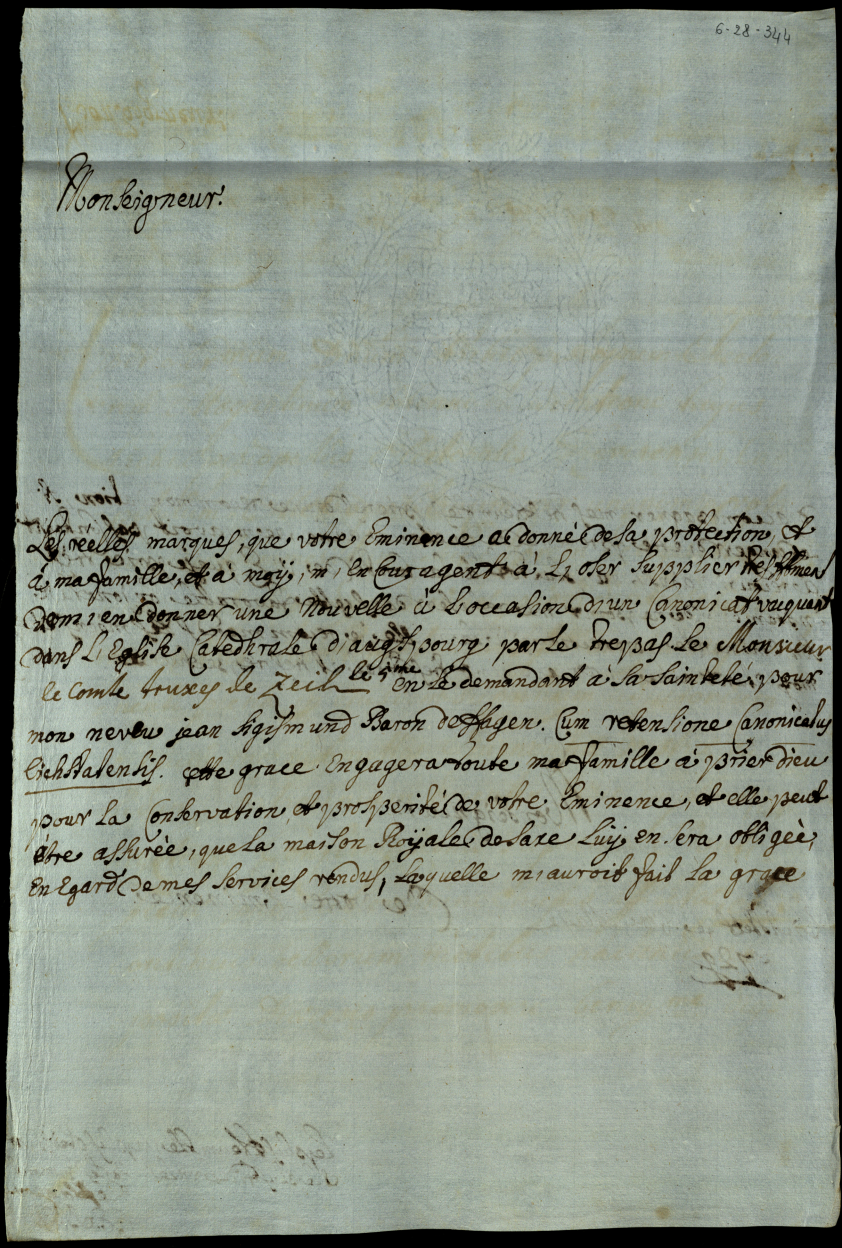 6-28-344
Monseigneur.
Les réelles marques, que votre Eminence a donné de sa protection, et
á ma famille, et á moÿ, m'encouragent á L'oser supplier
Dem'en donner une Nouvelle á L'occasion d'un Canonicat vaquant
dans L'Eglise Catedhrale d'augspourg par le trepas de Monsieur
le Comte truxes de Zeil le 5me en le demandant á sa Sainteté pour
mon neveu jean Sigismund Baron de Hagen. Cum retensione Canonicatus
Eichstatensis. cette grace Engagera toute ma famille á prier Dieu
pour la Conservation, et prosperité de votre Eminence, et elle peut
être assurée, que la maison Roÿale de saxe Luÿ en sera obligeè,
en Egard de mes services rendus, Laquelle m'auroit fait la grace